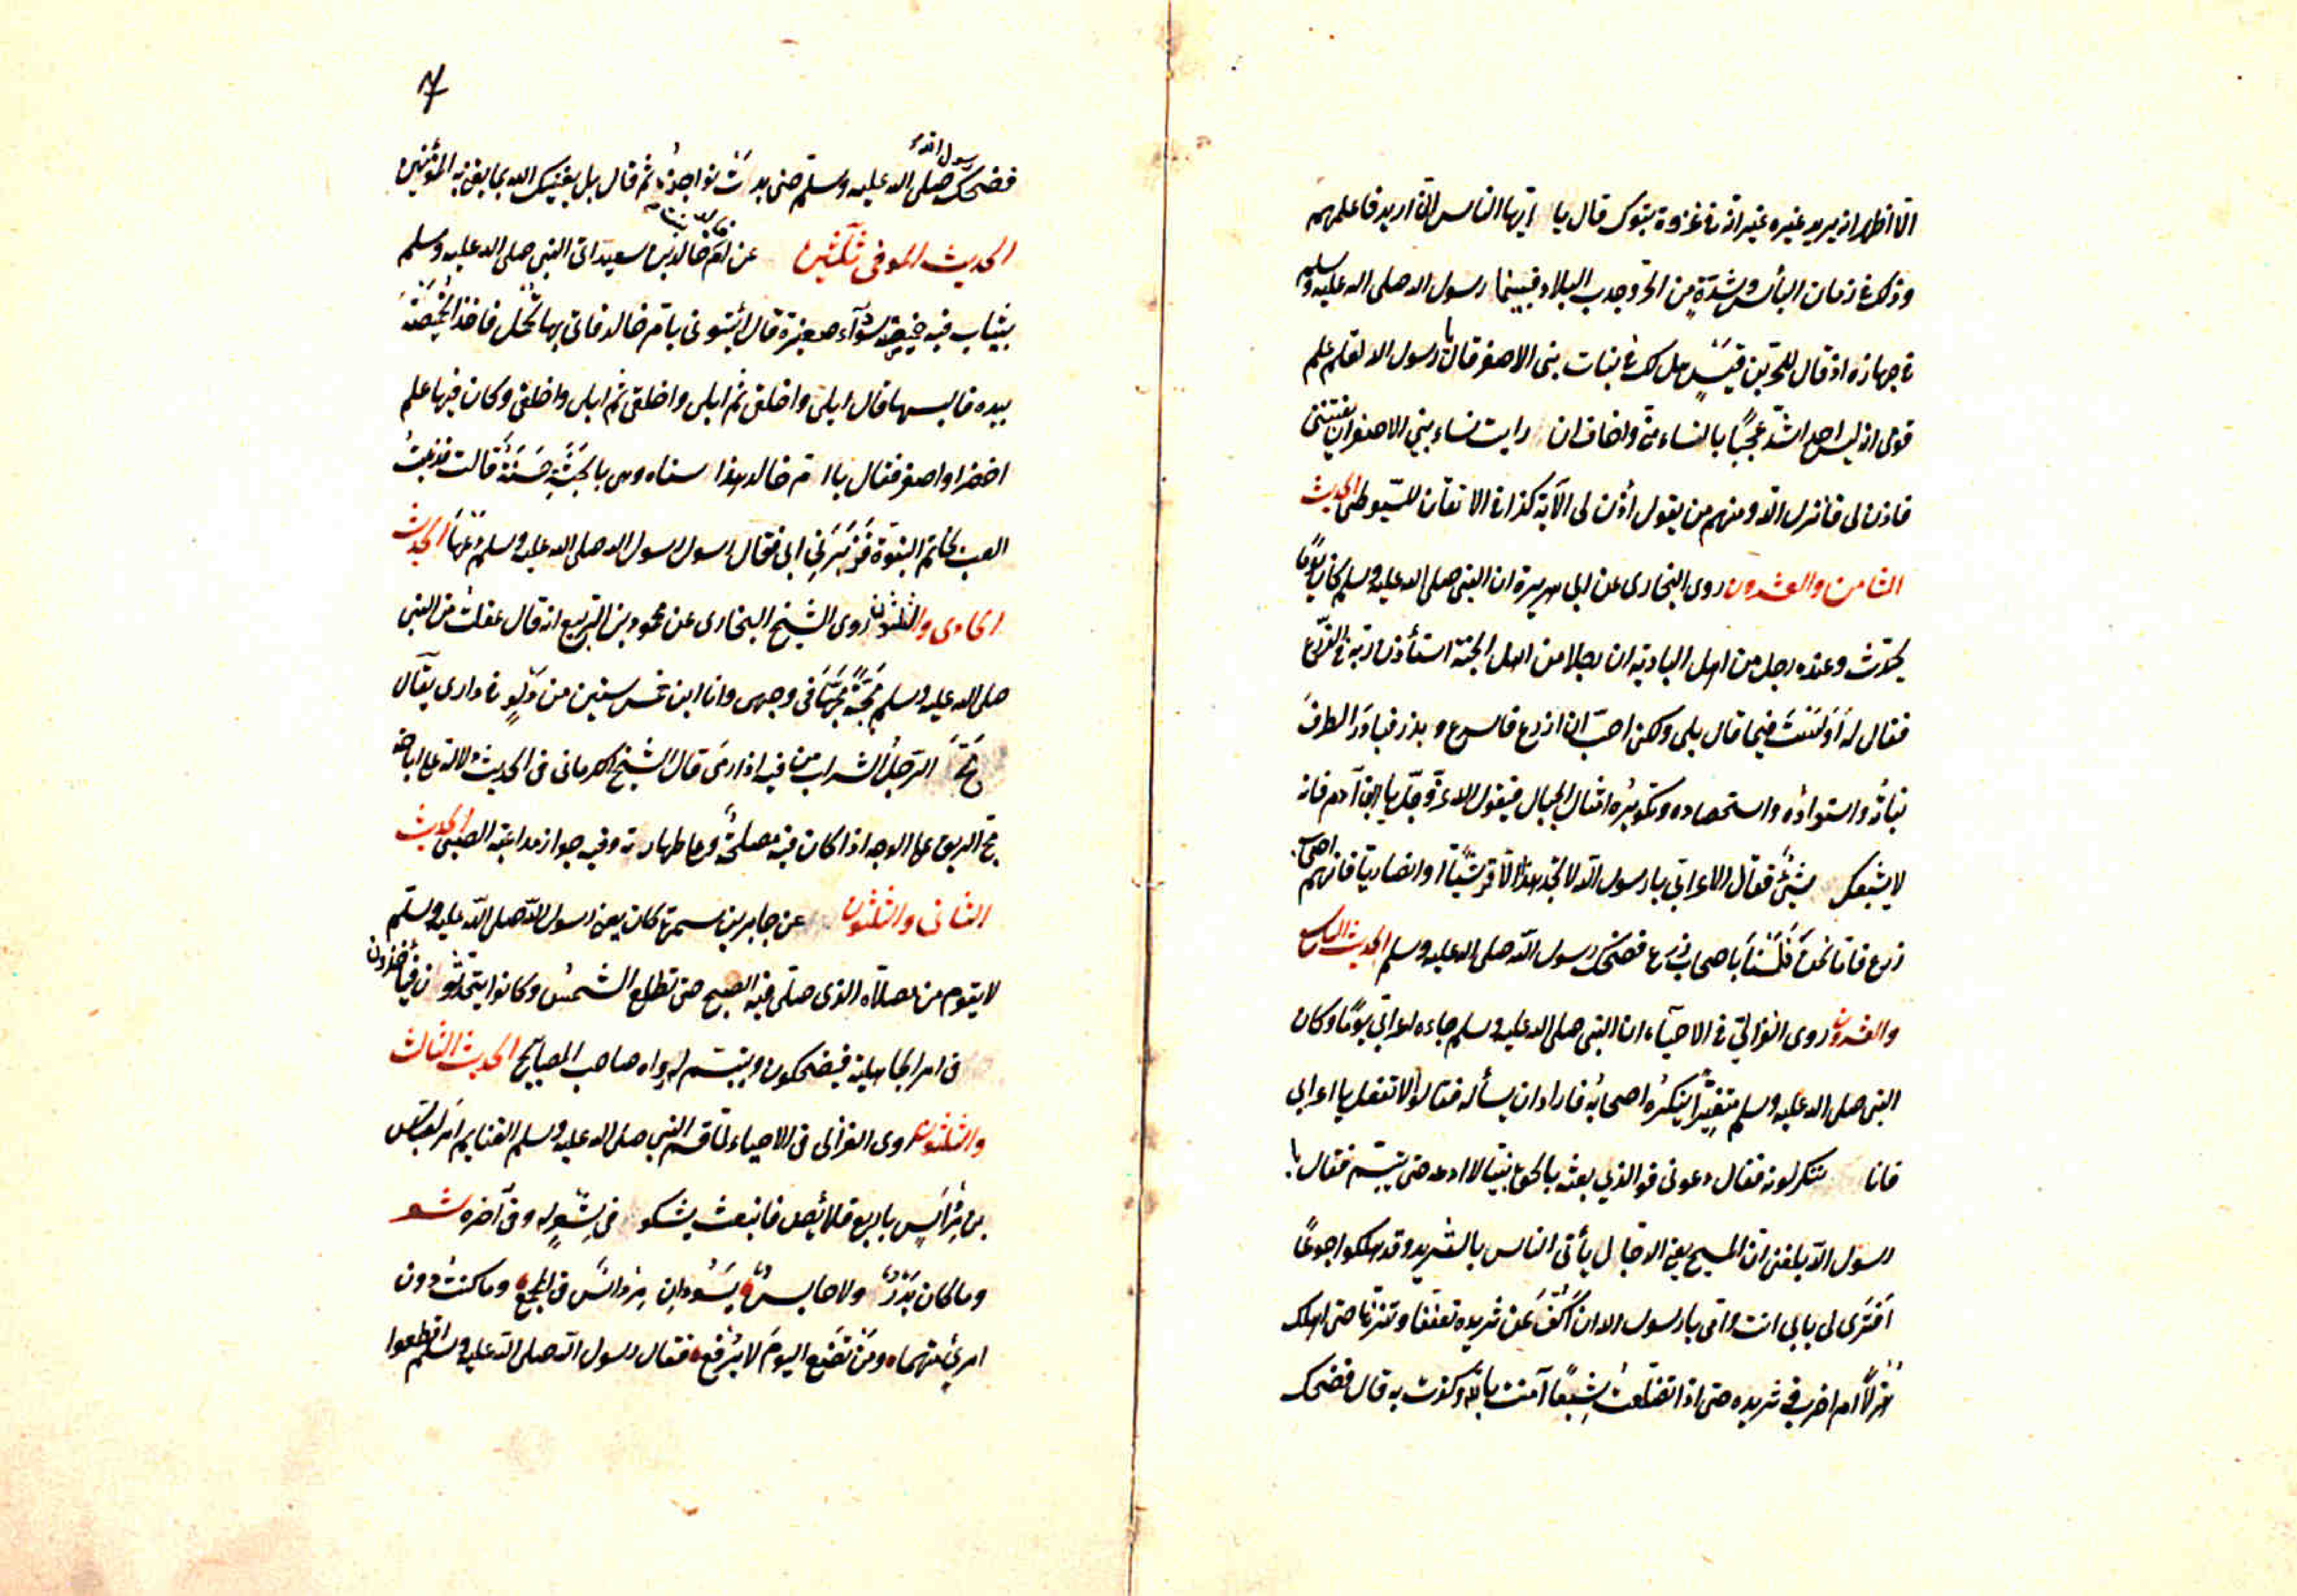 الا اظهر انه يريد غيره غير انه في غزوة تبوك قال يا ايها الناس اني اريد فاعلمهم
وذلك في زمان البأس وشدة من الحر وجدب البلاد فبينما رسول الله صلى الله عليه وسلم
في جهازه اذ قال للجد بن قيس هل لك في بنات بني الاصفر قال يا رسول الله لقد علم
قومي انه ليس احد اشد عجبًا بالنساء مني واخاف ان رايت نساء بني الاصفر ان يفتنني
فاذن لي فانزل الله ومنهم من يقول ائذن لي الآية كذا في الاتقان للسيوطي الحديث
الثامن والعشرون روى البخارى عن ابي هريرة ان النبي صلى الله عليه وسلم كان يومًا
يحدث وعنده رجل من اهل البادية ان رجلا من اهل الجنة استأذن ربه في الزرع
فقال له أولست فيما قال بلى ولكن احب ان ازرع فاسرع وبذر فبادر الطرف
نباته واستواؤه واستحصاده وتكويره امثال الجبال فيقول الله عز وجل يا ابن آدم فانه
لا يشبعك شئ فقال الاعرابي يا رسول الله لا تجد هذا الا قرشيًا او انصاريا فانهم اصحاب
زرع فاما نحن فلسنا باصحاب زرع فضحك رسول الله صلى الله عليه وسلم الحديث التاسع
والعشرون روى الغزالي في الاحياء ان النبي صلى الله عليه وسلم جاءه اعرابي يومًا وكان
النبي صلى الله عليه وسلم متغيرًا ينكره اصحابه فاراد ان يسأله فقالوا لا تفعل يا اعرابي
فانا ننكر لونه فقال دعوني فوالذي بعثه بالحق نبيا لا ادعه حتى يتبسم فقال يا
رسول الله بلغنى ان المسيح يعني الدجال يأتى الناس بالثريد وقد هلكوا جوعًا
أفترى لى بابي انت وامي يا رسول الله ان أكف عن ثريده تعففا وتنزها حتى اهلك
هزلًا ام اضرب في ثريده حتى اذا تضلعت شبعًا آمنت بالله وكفرت به قال فضحك
٧
فضحك رسول الله صلى الله عليه وسلم حتى بدت نواجذه ثم قال بل يغنيك الله بما يغني به المؤمنين
الحديث الموفى ثلثين عن ام خالد بنت خالد بن سعيد اتى النبي صلى الله عليه وسلم
بثياب فيه خميصة سوداء صغيرة قال ائتونى بام خالد فاتي بها تحمل فاخذ الخميصة
بيده فالبسها قال ابلى واخلقى ثم ابلى واخلقى ثم ابلى واخلقى وكان فيها علم
اخضر او اصفر فقال يا ام خالد هذا سناه وهى بالحبشية حسنة قالت فذهبت
العب بخاتم النبوة فزبرني ابى فقال رسول الله صلى الله عليه وسلم دعها الحديث
الحادى والثلثون روى الشيخ البخارى عن محمود بن الربيع انه قال عقلت من النبي
صلى الله عليه وسلم مجة مجها فى وجهى وانا ابن خمس سنين من دلو في دارى يقال
مج الرجل الشراب من فيه اذا رمى قال الشيخ الكرمانى فى الحديث دلالة على اباحة
مج الريق على الوجه اذا كان فيه مصلحة وعلى طهارته وفيه جواز مداعبة الصبى الحديث
الثانى والثلثون عن جابر بن سمرة كان يعني رسول الله صلى الله عليه وسلم
لا يقوم من مصلاه الذى صلى فيه الصبح حتى تطلع الشمس وكانوا يتحدثون فيأخذون
فى امر الجاهلية فيضحكون ويتبسم رواه صاحب المصابيح الحديث الثالث
والثلثون روى الغزالى فى الاحياء لما قسم النبي صلى الله عليه وسلم الغنايم امر لعباس
بن مرداس باربع قلائص فانبعث يشكو فى شعر له وفى آخره شعر
وما كان بدر ولا حابس يسودان مرداس فى المجمع وما كنت دون
امرئ منهما ومن تضع اليوم لا يرفع فقال رسول الله صلى الله عليه وسلم اقطعوا